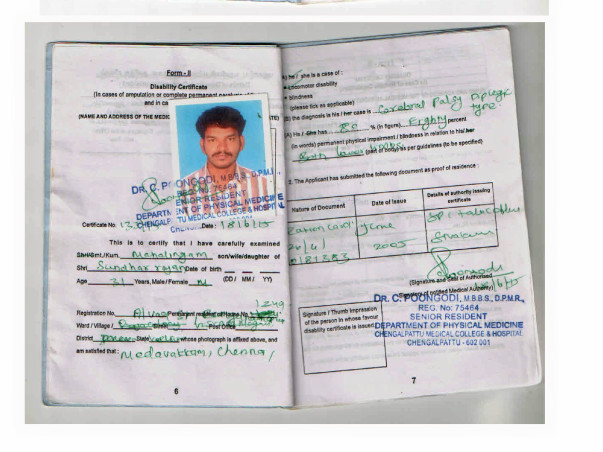 Form - II
Disability Certificate
(In cases of amputation or complete permanent
and in ca
(NAME AND ADDRESS OF THE MEDIC
DR. C. POONGODI, M.B.B.S., D.P.M.R.,
REG. No: 75464
SENIOR RESIDENT
DEPARTMENT OF PHYSICAL MEDICINE
CHENGALPATTU MEDICAL COLLEGE & HOSPITAL
Certificate No. Date : 18/6/15
This is to certify that I have carefully examined
Shri/Smt./Kum. Mahalingam son/wife/daughter of
Shri Sundharrajan Date of birth
Age 31 Years, Male/Female M (DD / MM / YY)
Registration No. Permanent resident of House No.
Ward / Village / Post Office
District State whose photograph is affixed above, and
am satisfied that : Medavakkam, Chennai,
6
(A) he / she is a case of :
locomotor disability
blindness
(please tick as applicable)
(B) the diagnosis in his / her case is Cerebral Palsy Diplegic type
(A) He / She has 80 % (in figure) Eighty percent
(in words) permanent physical impairment / blindness in relation to his/her
Both lower limbs (part of body) as per guidelines (to be specified)
2. The Applicant has submitted the following document as proof of residence :
Nature of Document Date of Issue Details of authority issuing certificate
June
2005
Poongodi
(Signature and Seal of Authorised
Signatory of notified Medical Authority)
DR. C. POONGODI, M.B.B.S., D.P.M.R.,
REG. No: 75464
SENIOR RESIDENT
DEPARTMENT OF PHYSICAL MEDICINE
CHENGALPATTU MEDICAL COLLEGE & HOSPITAL
CHENGALPATTU - 602 001
Signature / Thumb Impression
of the person in whose favour
disability certificate is issued
7